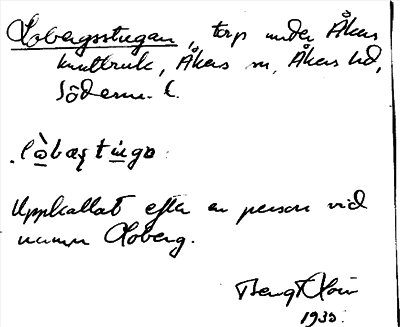 Lobergsstugan, torp under Åkers
krutbruk, Åkers sn, Åkers hd,
Söderm. l.
lòbæʂtɯgɒ
Uppkallat efter en person vid
namn Loberg.
Bengt
1935.